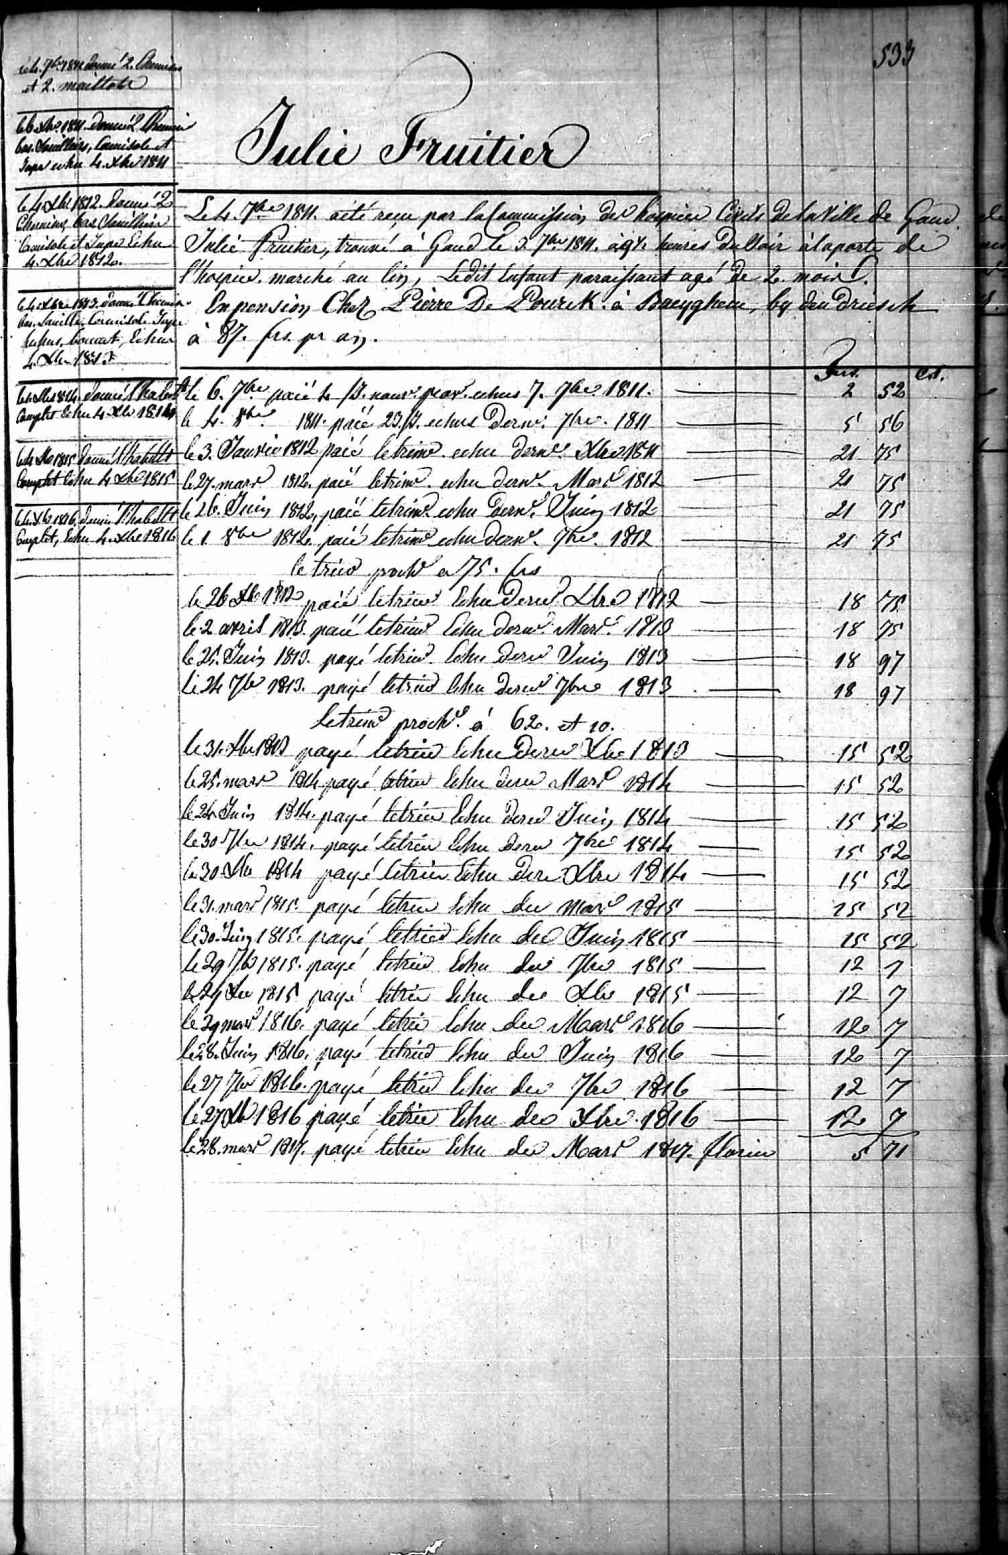 533
le 4. 7bre 1811 donné 2. Chemises
et 2. maillots
le 6 Xbre 1811. donné 2 Chemises
bas, Souilliers, Camisole et
Jupe echu 4. Xbre 1811
le 4 Xbre 1812. donné 2
Chemises, bas Souilliers
Camisole et Jupe Echu
4. Xbre 1812.
le 4 Xbre 1813. donné Chemise
bas. Souillier Camisole Jupe
bonnet, Echu
4. Xbre 1813
le 4 Xbre 1814. donné l'habillt
Complet Echu 4. Xbre 1814
le 4 Xbre 1815 donné l'habillt
Complet Echu 4. Xbre 1815
le 4 Xb 1816. donné l'habillt
Complet, Echu 4. Xbre 1816
Julie Fruitier
Le 4. 7bre 1811. a été recu par la Commission des hospices Civils de la Ville de Gand.
Julie Fruitier, trouvé à Gand le 3. 7bre 1811. à 9½ heures du Soir à la porte de
l'hospice. marché au lin, Ledit Enfant paraissant agé de 2. mois.
En pension Chez Pierre De Pourck. à Baeyghem, by den Driesch
à 87. frs. pr an.
Frs. Cs.
le 6. 7bre paié 4 js. nour. prov. echus 7. 7bre 1811. 2 52
le 4. 8bre 1811. paié 23 js. echus dernr. 7bre. 1811 5 56
le 3. Janvier 1812 paié le trimr. echu dernr. Xbre 1811 21 75
le 27. mars 1812. paié le trimr. echu dernr. Mars 1812 21 75
le 26. Juin 1812, paié le trimr. echu dernr. Juin 1812 21 75
le 1 8bre 1812. paié le trimr. echu dernr. 7bre. 1812 21 75
le trim prochn a 75. frs
le 26 Xbre 1812 paié le trimr Echu dernr Xbre 1812 18 75
le 2 avril 1813. paié le trimr Echu dernr. Mars. 1813 18 75
le 25. Juin 1813. payé le trimr. Echu dernr Juin 1813 18 97
le 24 7bre 1813. payé le trimr Echu dernr 7bre 1813 18 97
le trimr prochn. à 62. et 10.
le 31. Xbre 1813 payé le trim Echu dernr Xbre 1813 15 52
le 25. mars 1814 payé le trim Echu dernr Mars 1814 15 52
le 24 Juin 1814. payé le trim Echu dernr Juin 1814 15 52
le 30 7bre 1814. payé le trim Echu dernr 7bre 1814 15 52
le 30 Xbre 1814 payé le trim Echu der Xbre 1814 15 52
le 31. mars 1815. payé le trim Echu der mars 1815 15 52
le 30. Juin 1815. payé le trim Echu der Juin 1815 15 52
le 29 7b 1815. payé le trim Echu der 7bre 1815 12 7
le 29 Xbre 1815 payé le trim Echu der Xbre 1815 12 7
le 29 mars 1816. payé le trim Echu der Mars 1816 12 7
le 28. Juin 1816. payé le trim Echu der Juin 1816 12 7
le 27 7bre 1816. payé le trim Echu der 7bre 1816 12 7
le 27 Xb 1816 payé le trim Echu der Xbre 1816 12 7
le 28. mars 1817. payé le trim Echu der Mars 1817. florins 5 71